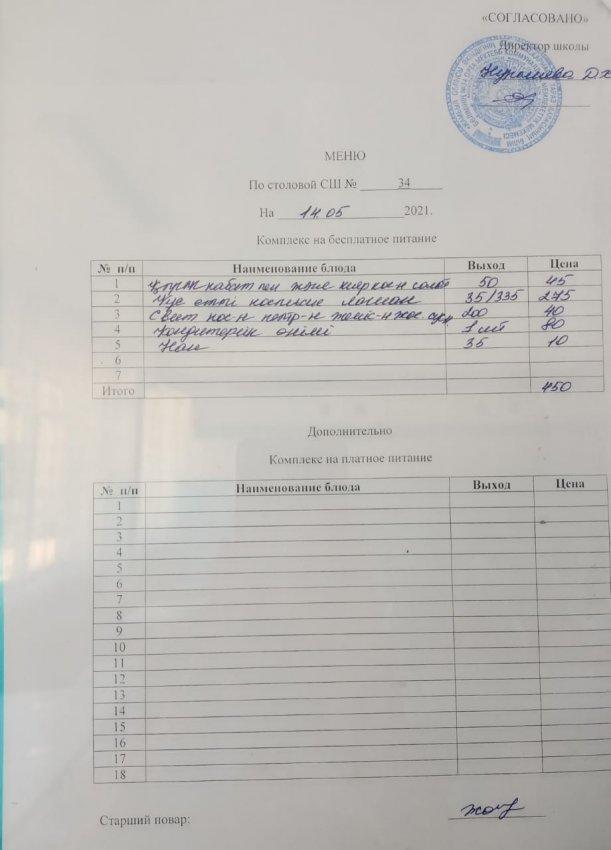 «СОГЛАСОВАНО»
Директор школы
МЕНЮ
По столовой СШ № 34
На 14.05 2021.
Комплекс на бесплатное питание
№ п/п Наименование блюда Выход Цена
1 50 45
2 Құс етті лағман 35/335 275
3 200 40
4 Кондитерлік өнімі 1 шт 80
5 Нан 35 10
6
7
Итого 450
Дополнительно
Комплекс на платное питание
№ п/п Наименование блюда Выход Цена
1
2
3
4
5
6
7
8
9
10
11
12
13
14
15
16
17
18
Старший повар: